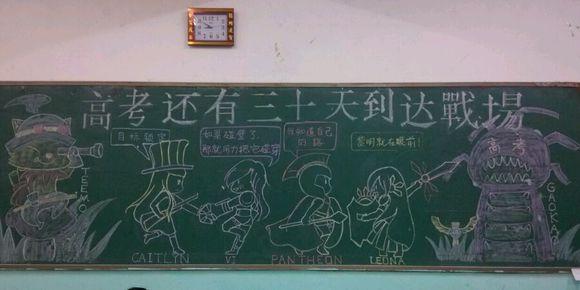 高考还有三十天到达戰場
目标锁定
如果碰壁了
那就用力把它碰穿
我知道自己
的路
黎明就在眼前!
高考
TEEMO
CAITLIN
VI
PANTHEON
LEONA